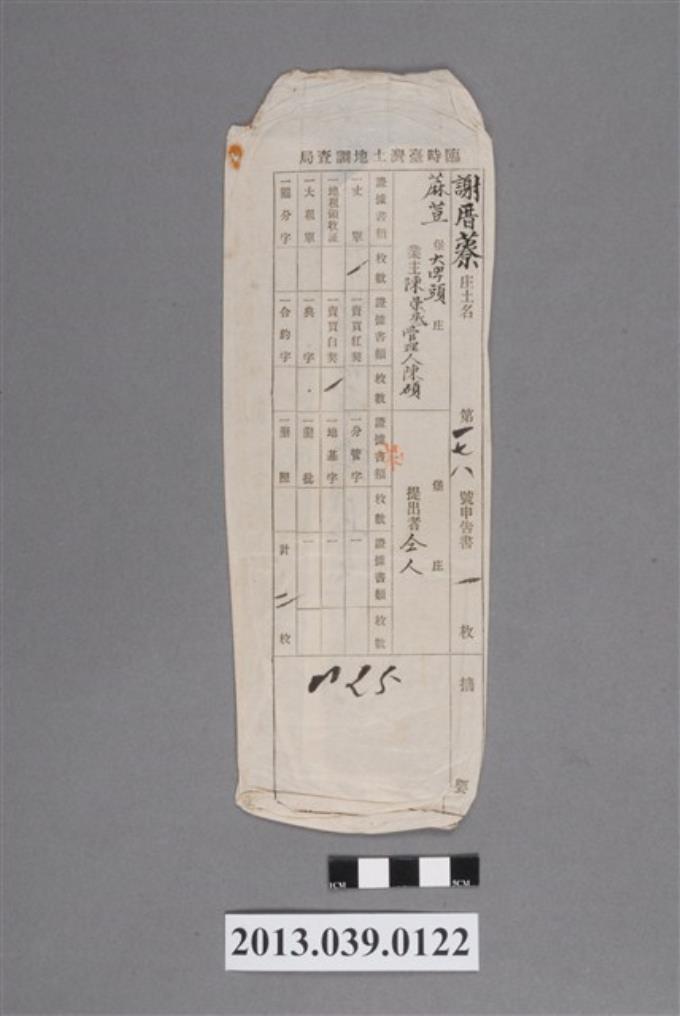 臨時臺灣土地調查局
謝厝藔庄土名 第一七八號申告書一枚 摘要
蔴荳堡大埤頭庄
業主陳 管理人陳碩
堡 庄
提出者仝人
證據書類 枚數 證據書類 枚數 證據書類 枚數 證據書類 枚數
一丈單 一 一賣買紅契 一分管字 一
一地租領收証 一賣買白契 一 一地基字 一
一大租單 一典字 一墾批 一
一鬮分字 一合約字 一墾照 計二枚
1CM
5CM
2013.039.0122